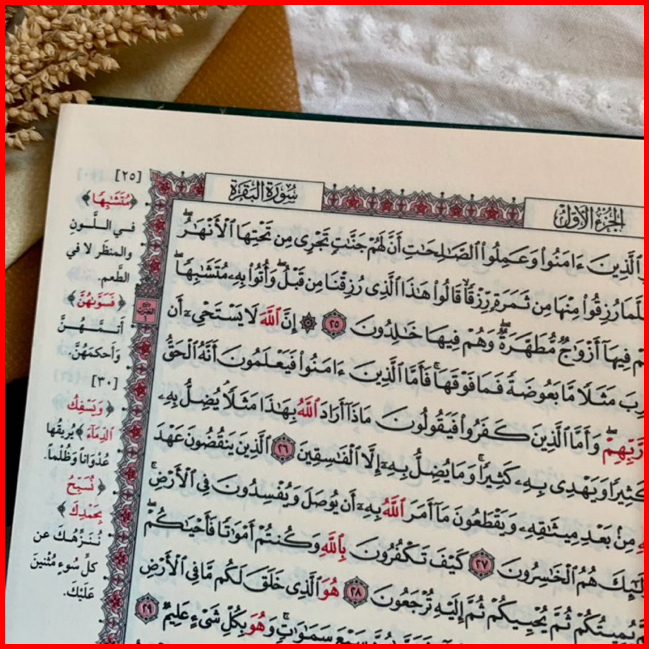 سُورَةُ البَقَرَةِ
الجُزْءُ الأَوَّلُ
الَّذِينَ ءَامَنُوا وَعَمِلُوا الصَّالِحَاتِ أَنَّ لَهُمْ جَنَّاتٍ تَجْرِي مِن تَحْتِهَا الْأَنْهَارُ
رُزِقُوا مِنْهَا مِن ثَمَرَةٍ رِّزْقًا قَالُوا هَذَا الَّذِي رُزِقْنَا مِن قَبْلُ وَأُتُوا بِهِ مُتَشَابِهًا
فِيهَا أَزْوَاجٌ مُّطَهَّرَةٌ وَهُمْ فِيهَا خَالِدُونَ ٢٥ ۞ إِنَّ اللَّهَ لَا يَسْتَحْيِ أَن
مَثَلًا مَّا بَعُوضَةً فَمَا فَوْقَهَا فَأَمَّا الَّذِينَ ءَامَنُوا فَيَعْلَمُونَ أَنَّهُ الْحَقُّ
رَّبِّهِمْ وَأَمَّا الَّذِينَ كَفَرُوا فَيَقُولُونَ مَاذَا أَرَادَ اللَّهُ بِهَذَا مَثَلًا يُضِلُّ بِهِ
كَثِيرًا وَيَهْدِي بِهِ كَثِيرًا وَمَا يُضِلُّ بِهِ إِلَّا الْفَاسِقِينَ ٢٦ الَّذِينَ يَنقُضُونَ عَهْدَ
مِنْ بَعْدِ مِيثَاقِهِ وَيَقْطَعُونَ مَا أَمَرَ اللَّهُ بِهِ أَن يُوصَلَ وَيُفْسِدُونَ فِي الْأَرْضِ
هُمُ الْخَاسِرُونَ ٢٧ كَيْفَ تَكْفُرُونَ بِاللَّهِ وَكُنتُمْ أَمْوَاتًا فَأَحْيَاكُمْ
يُمِيتُكُمْ ثُمَّ يُحْيِيكُمْ ثُمَّ إِلَيْهِ تُرْجَعُونَ ٢٨ هُوَ الَّذِي خَلَقَ لَكُم مَّا فِي الْأَرْضِ
سَبْعَ سَمَاوَاتٍ وَهُوَ بِكُلِّ شَيْءٍ عَلِيمٌ ٢٩
[٢٥]
﴿مُتَشَابِهًا﴾
فِي اللَّونِ
والمنظَر لا في
الطَّعم.
﴿فَسَوَّاهُنَّ﴾
أتمَّهُنَّ
وَأحكمَهُنَّ.
[٣٠]
﴿وَيَسْفِكُ
الدِّمَاءَ﴾ يُريقُها
عُدْوَاناً وَظُلْماً.
﴿نُسَبِّحُ
بِحَمْدِكَ﴾
نُنَزِّهُكَ عن
كلِّ سُوءٍ مُثْنينَ
عَلَيْكَ.